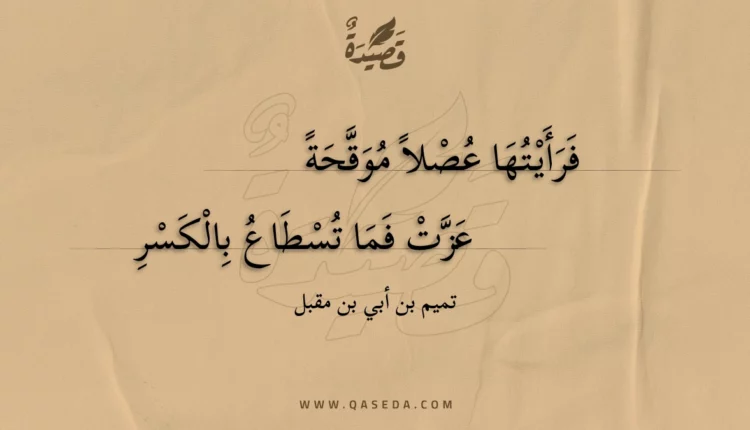 قَصِيدَةٌ
فَرَأَيْتُهَا عُصْلاً مُوَقَّحَةً
عَزَّتْ فَمَا تُسْطَاعُ بِالْكَسْرِ
تميم بن أبي بن مقبل
WWW.QASEDA.COM